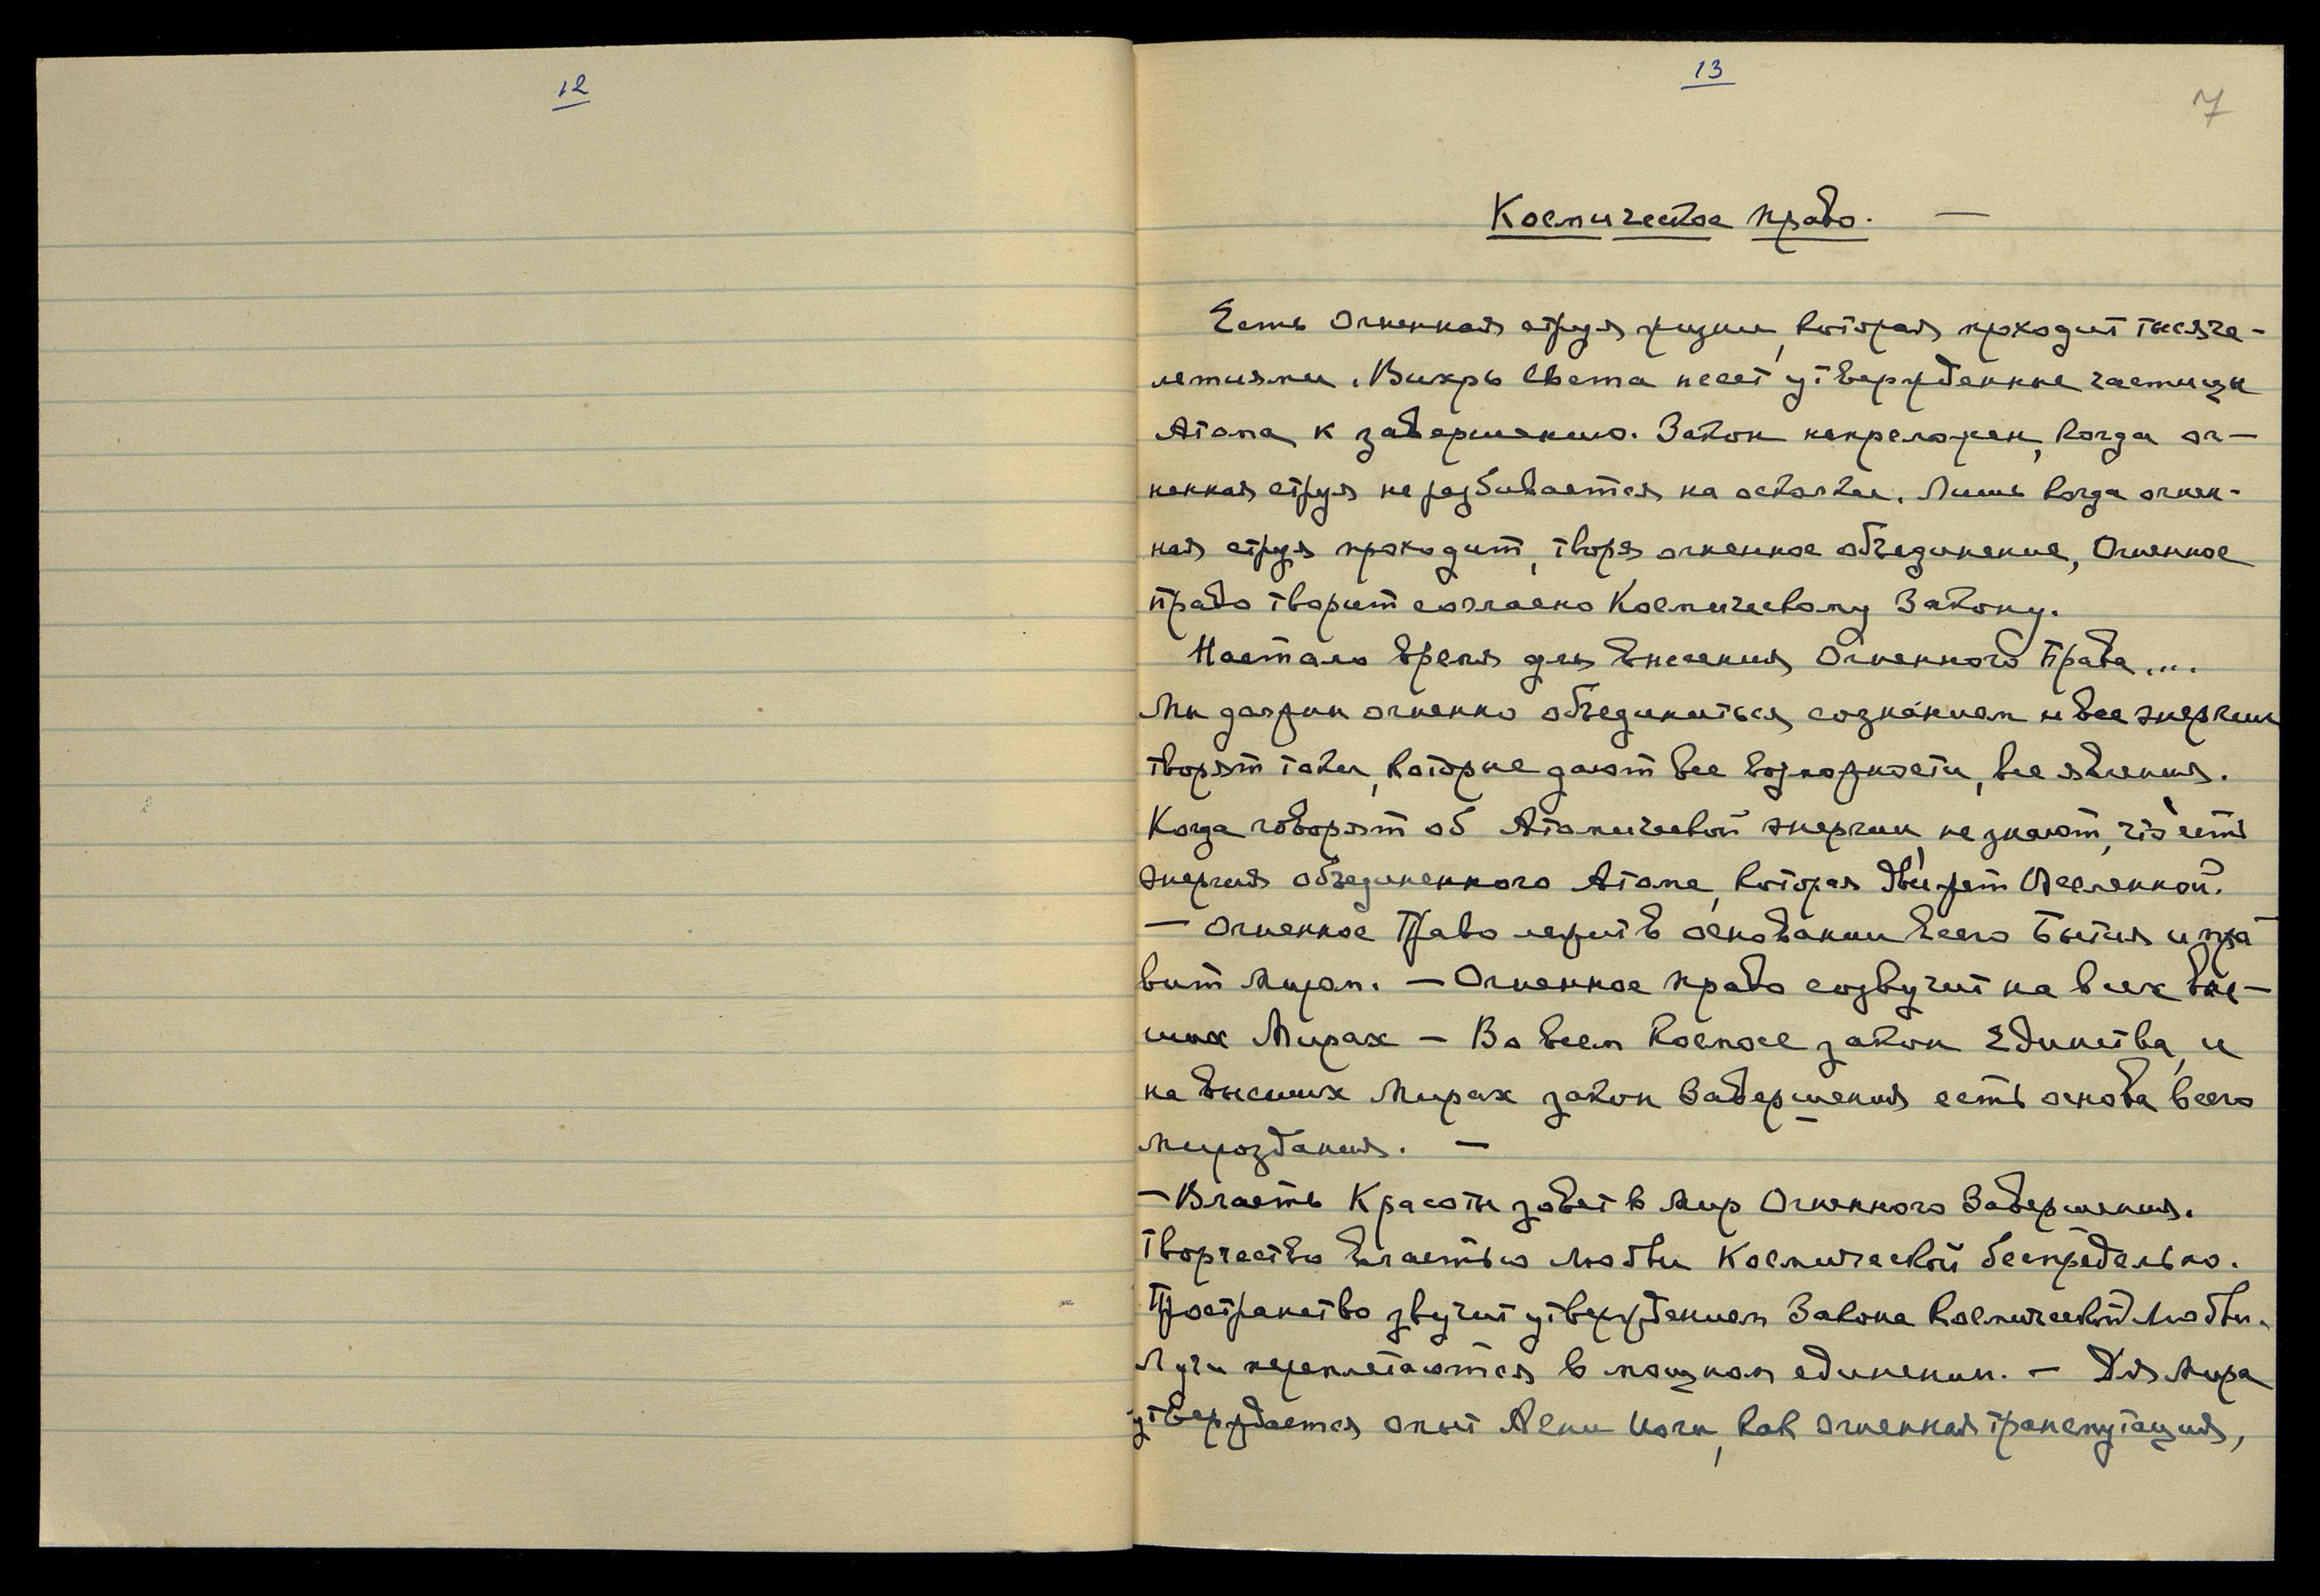 12
13
7
Космическое право. —
Есть Огненная струя жизни, которая проходит тысяче-
летиями. Вихрь Света несет утвержденные частицы
Атома к завершению. Закон непреложен, когда ог-
ненная струя не разбивается на осколки. Лишь когда огнен-
ная струя проходит, творя огненное объединение, Огненное
право творит согласно Космическому Закону.
Настало время для внесения Огненного Права....
Мы должны огненно объединиться сознанием и все энергии
творят токи, которые дают все возможности, все явления.
Когда говорят об Атомической энергии, не знают, что есть
энергия объединенного Атома, которая движет Вселенной.
— Огненное Право лежит в основании всего Бытия и пра
вит миром. — Огненное право созвучит на всех выс-
ших Мирах — Во всем Космосе закон Единства, и
на высших Мирах закон Завершения есть основа всего
мироздания. —
— Власть Красоты зовет в Мир Огненного Завершения.
Творчество властью Любви Космической беспредельно.
Пространство звучит утверждением Закона Космической Любви.
Лучи переплетаются в мощном единении. — Для Мира
утверждается опыт Агни Йоги, как огненная трансмутация,